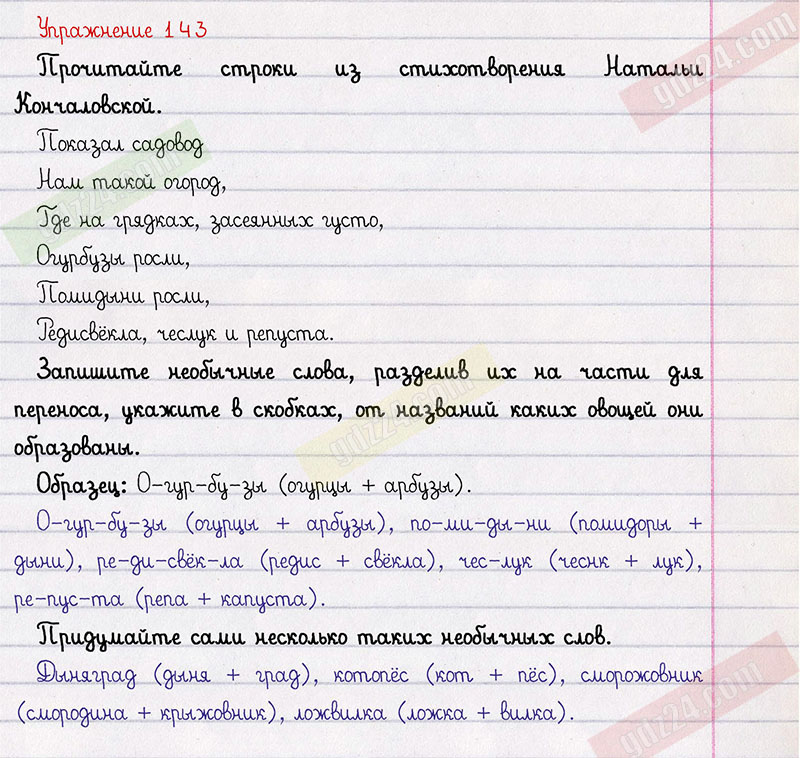 Упражнение 143
Прочитайте строки из стихотворения Натальи
Кончаловской.
Показал садовод
Нам такой огород,
Где на грядках, засеянных густо,
Огурбузы росли,
Помидыни росли,
Редисвёкла, чеслук и репуста.
Запишите необычные слова, разделив их на части для
переноса, укажите в скобках, от названий каких овощей они
образованы.
Образец: О-гур-бу-зы (огурцы + арбузы).
О-гур-бу-зы (огурцы + арбузы), по-ми-ды-ни (помидоры +
дыни), ре-ди-свёк-ла (редис + свёкла), чес-лук (чеснк + лук),
ре-пус-та (репа + капуста).
Придумайте сами несколько таких необычных слов.
Дыняград (дыня + град), котопёс (кот + пёс), сморожовник
(смородина + крыжовник), ложвилка (ложка + вилка).
gdz24.com
gdz24.com
gdz24.com
gdz24.com